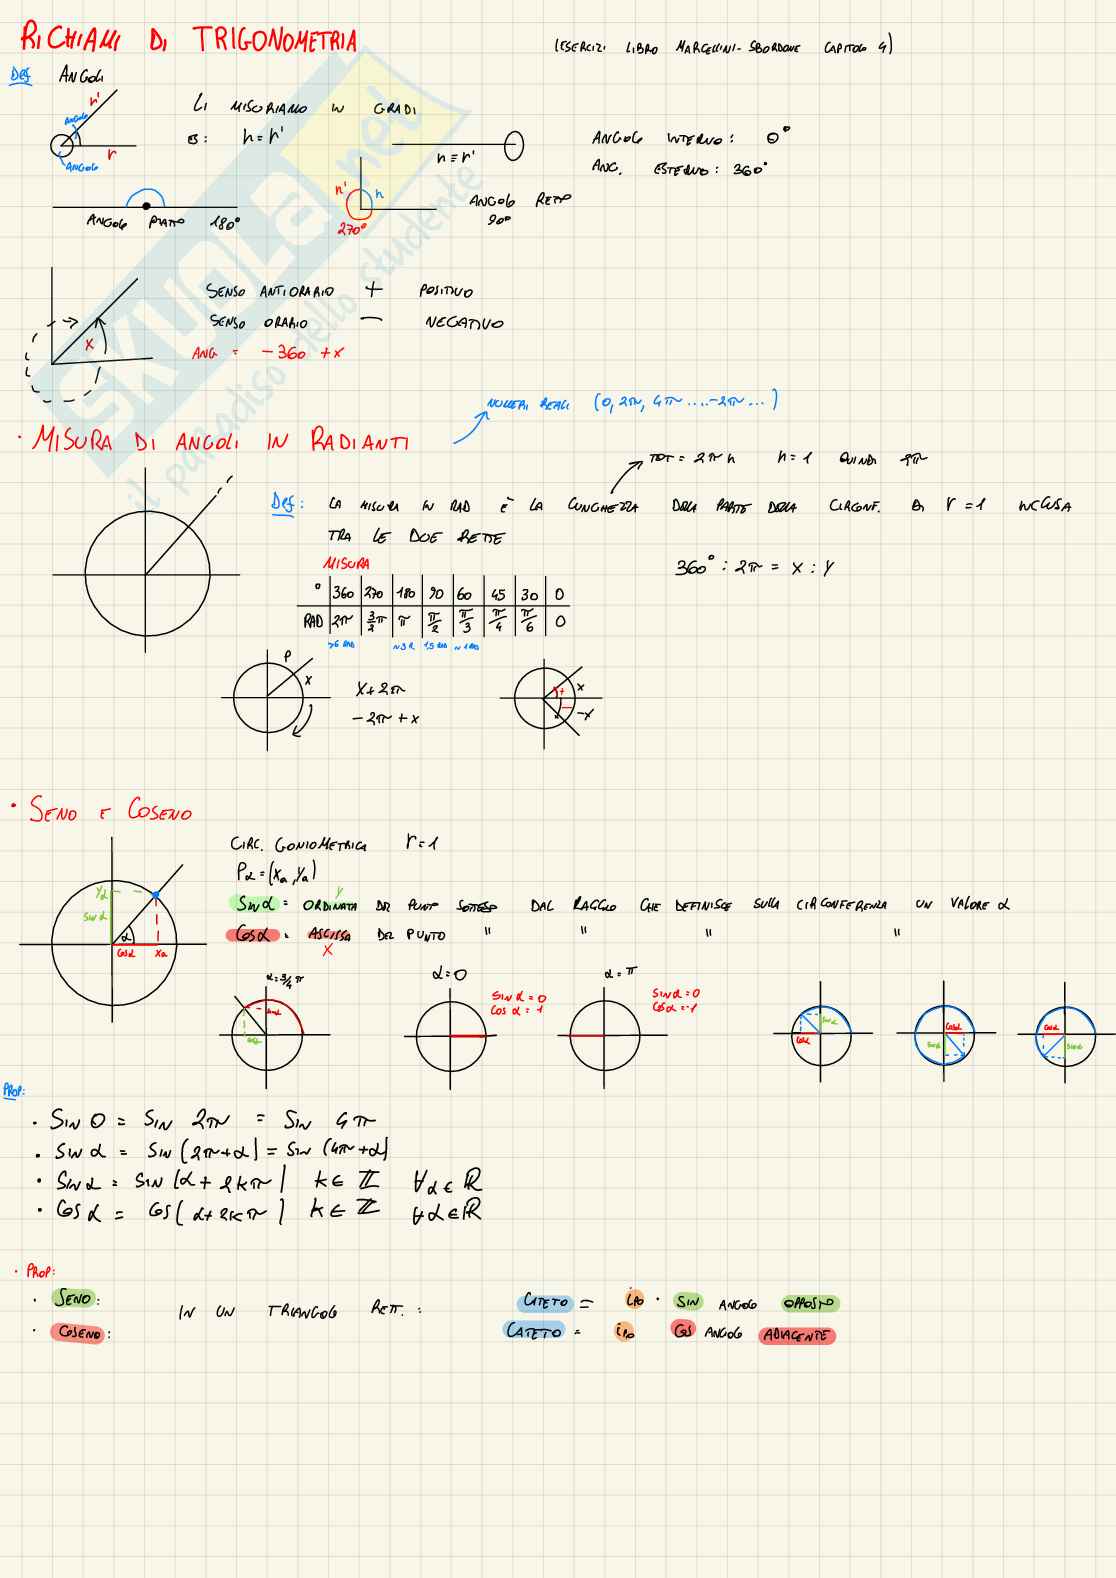 RICHIAMI DI TRIGONOMETRIA
(ESERCIZI LIBRO MARCELLINI-SBORDONE CAPITOLO 4)
Def ANGOLI
r'
ANGOLO
r
ANGOLO
LI MISURIAMO IN GRADI
ES: r=r'
r≡r'
ANGOLO INTERNO: 0°
ANG. ESTERNO: 360°
ANGOLO PIATTO 180°
r'
r
270°
ANGOLO RETTO
90°
SENSO ANTIORARIO + POSITIVO
SENSO ORARIO − NEGATIVO
x
ANG = -360 +x
NUMERI REALI (0, 2π, 4π ....-2π ...)
· MISURA DI ANGOLI IN RADIANTI
TOT = 2πr r=1 QUINDI 2π
Def: LA MISURA IN RAD È LA LUNGHEZZA DELLA PARTE DELLA CIRCONF. DI r=1 INCLUSA
TRA LE DUE RETTE
MISURA
360° : 2π = x : y
° 360 270 180 90 60 45 30 0
RAD 2π 3/2π π π/2 π/3 π/4 π/6 0
>6 RAD ~3 R. 1,5 RAD ~1 RAD
P
x
x+2π
-2π+x
+
x
−
-x
· SENO E COSENO
CIRC. GONIOMETRICA r=1
Pα=(xa,ya)
y
Sinα = ORDINATA DEL PUNTO SOTTESO DAL RAGGIO CHE DEFINISCE SULLA CIRCONFERENZA UN VALORE α
Cosα = ASCISSA DEL PUNTO " " " "
x
yα
Sinα
α
Cosα
xa
α=3/4 π
Sinα
Cosα
α=0
Sinα=0
Cosα=1
α=π
Sinα=0
Cosα=-1
Sinα
Cosα
Cosα
Sinα
Cosα
Sinα
PROP:
· SIN 0 = SIN 2π = SIN 4π
· SIN α = SIN(2π+α) = SIN(4π+α)
· SIN α = SIN(α+2kπ) k∈ℤ ∀α∈ℝ
· COS α = COS(α+2kπ) k∈ℤ ∀α∈ℝ
· PROP:
· SENO:
· COSENO:
IN UN TRIANGOLO RETT.:
CATETO = IPO · SIN ANGOLO OPPOSTO
CATETO = IPO COS ANGOLO ADIACENTE
SKUOLA.net
il paradiso dello studente